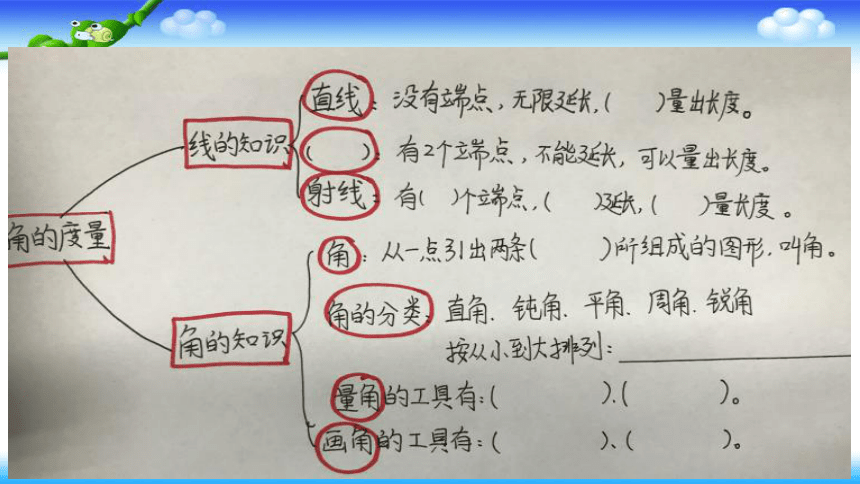 角的度量
线的知识
直线：没有端点，无限延长，(    )量出长度。
(    )：有2个端点，不能延长，可以量出长度。
射线：有(  )个端点，(    )延长，(    )量长度。
角的知识
角：从一点引出两条(    )所组成的图形，叫角。
角的分类：直角、钝角、平角、周角、锐角
按从小到大排列：____________
量角的工具有：(    )、(    )。
画角的工具有：(    )、(    )。